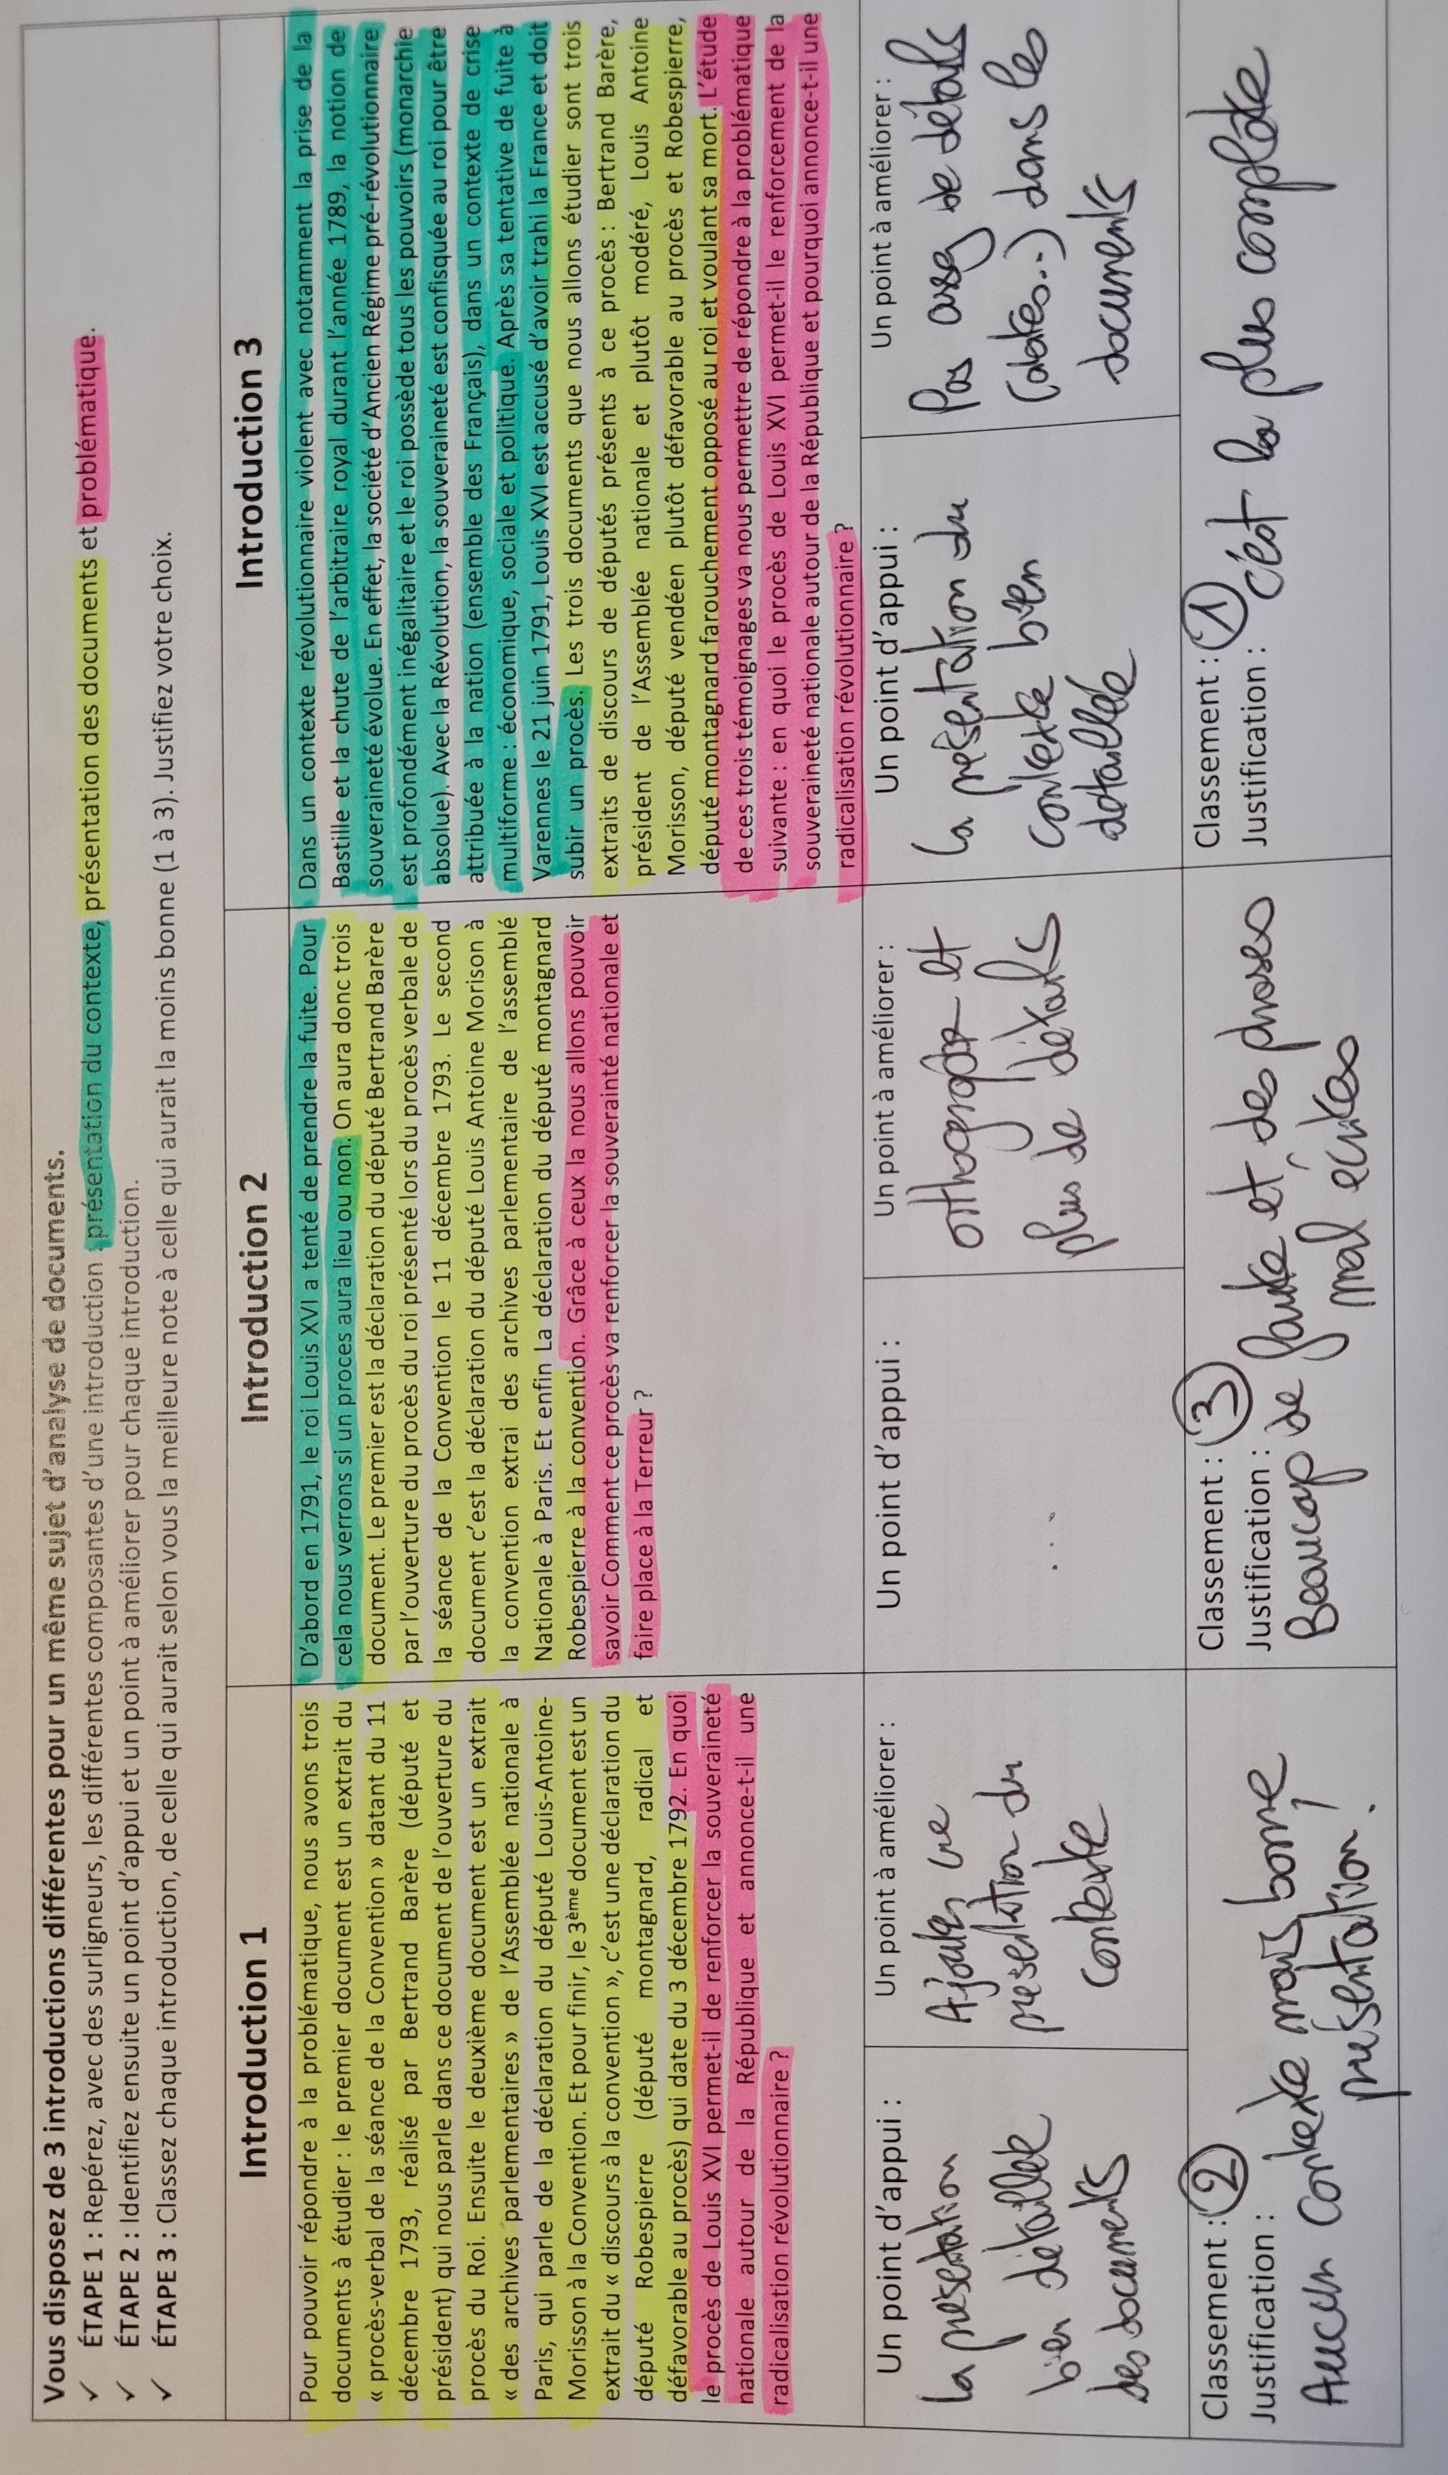 Vous disposez de 3 introductions différentes pour un même sujet d'analyse de documents.
✓ ÉTAPE 1 : Repérez, avec des surligneurs, les différentes composantes d'une introduction : présentation du contexte, présentation des documents et problématique.
✓ ÉTAPE 2 : Identifiez ensuite un point d'appui et un point à améliorer pour chaque introduction.
✓ ÉTAPE 3 : Classez chaque introduction, de celle qui aurait selon vous la meilleure note à celle qui aurait la moins bonne (1 à 3). Justifiez votre choix.
Introduction 1
Pour pouvoir répondre à la problématique, nous avons trois
documents à étudier : le premier document est un extrait du
« procès-verbal de la séance de la Convention » datant du 11
décembre 1793, réalisé par Bertrand Barère (député et
président) qui nous parle dans ce document de l'ouverture du
procès du Roi. Ensuite le deuxième document est un extrait
« des archives parlementaires » de l'Assemblée nationale à
Paris, qui parle de la déclaration du député Louis-Antoine-
Morisson à la Convention. Et pour finir, le 3ème document est un
extrait du « discours à la convention », c'est une déclaration du
député Robespierre (député montagnard, radical et
défavorable au procès) qui date du 3 décembre 1792. En quoi
le procès de Louis XVI permet-il de renforcer la souveraineté
nationale autour de la République et annonce-t-il une
radicalisation révolutionnaire ?
Un point d'appui :
la présentation
bien détaillée
des documents
Un point à améliorer :
Ajouter une
présentation du
contexte
Classement : 2
Justification :
Aucun contexte mais bonne
présentation.
Introduction 2
D'abord en 1791, le roi Louis XVI a tenté de prendre la fuite. Pour
cela nous verrons si un proces aura lieu ou non. On aura donc trois
document. Le premier est la déclaration du député Bertrand Barère
par l'ouverture du procès du roi présenté lors du procès verbale de
la séance de la Convention le 11 décembre 1793. Le second
document c'est la déclaration du député Louis Antoine Morison à
la convention extrai des archives parlementaire de l'assemblé
Nationale à Paris. Et enfin La déclaration du député montagnard
Robespierre à la convention. Grâce à ceux la nous allons pouvoir
savoir Comment ce procès va renforcer la souverainté nationale et
faire place à la Terreur ?
Un point d'appui :
...
Un point à améliorer :
orthographe et
plus de détails
Classement : 3
Justification :
Beaucoup de faute et des phrases
mal écrites
Introduction 3
Dans un contexte révolutionnaire violent avec notamment la prise de la
Bastille et la chute de l'arbitraire royal durant l'année 1789, la notion de
souveraineté évolue. En effet, la société d'Ancien Régime pré-révolutionnaire
est profondément inégalitaire et le roi possède tous les pouvoirs (monarchie
absolue). Avec la Révolution, la souveraineté est confisquée au roi pour être
attribuée à la nation (ensemble des Français), dans un contexte de crise
multiforme : économique, sociale et politique. Après sa tentative de fuite à
Varennes le 21 juin 1791, Louis XVI est accusé d'avoir trahi la France et doit
subir un procès. Les trois documents que nous allons étudier sont trois
extraits de discours de députés présents à ce procès : Bertrand Barère,
président de l'Assemblée nationale et plutôt modéré, Louis Antoine
Morisson, député vendéen plutôt défavorable au procès et Robespierre,
député montagnard farouchement opposé au roi et voulant sa mort. L'étude
de ces trois témoignages va nous permettre de répondre à la problématique
suivante : en quoi le procès de Louis XVI permet-il le renforcement de la
souveraineté nationale autour de la République et pourquoi annonce-t-il une
radicalisation révolutionnaire ?
Un point d'appui :
la présentation du
contexte bien
détaillée
Un point à améliorer :
Pas assez de détails
(dates..) dans les
documents
Classement : 1
Justification : c'est la plus complète